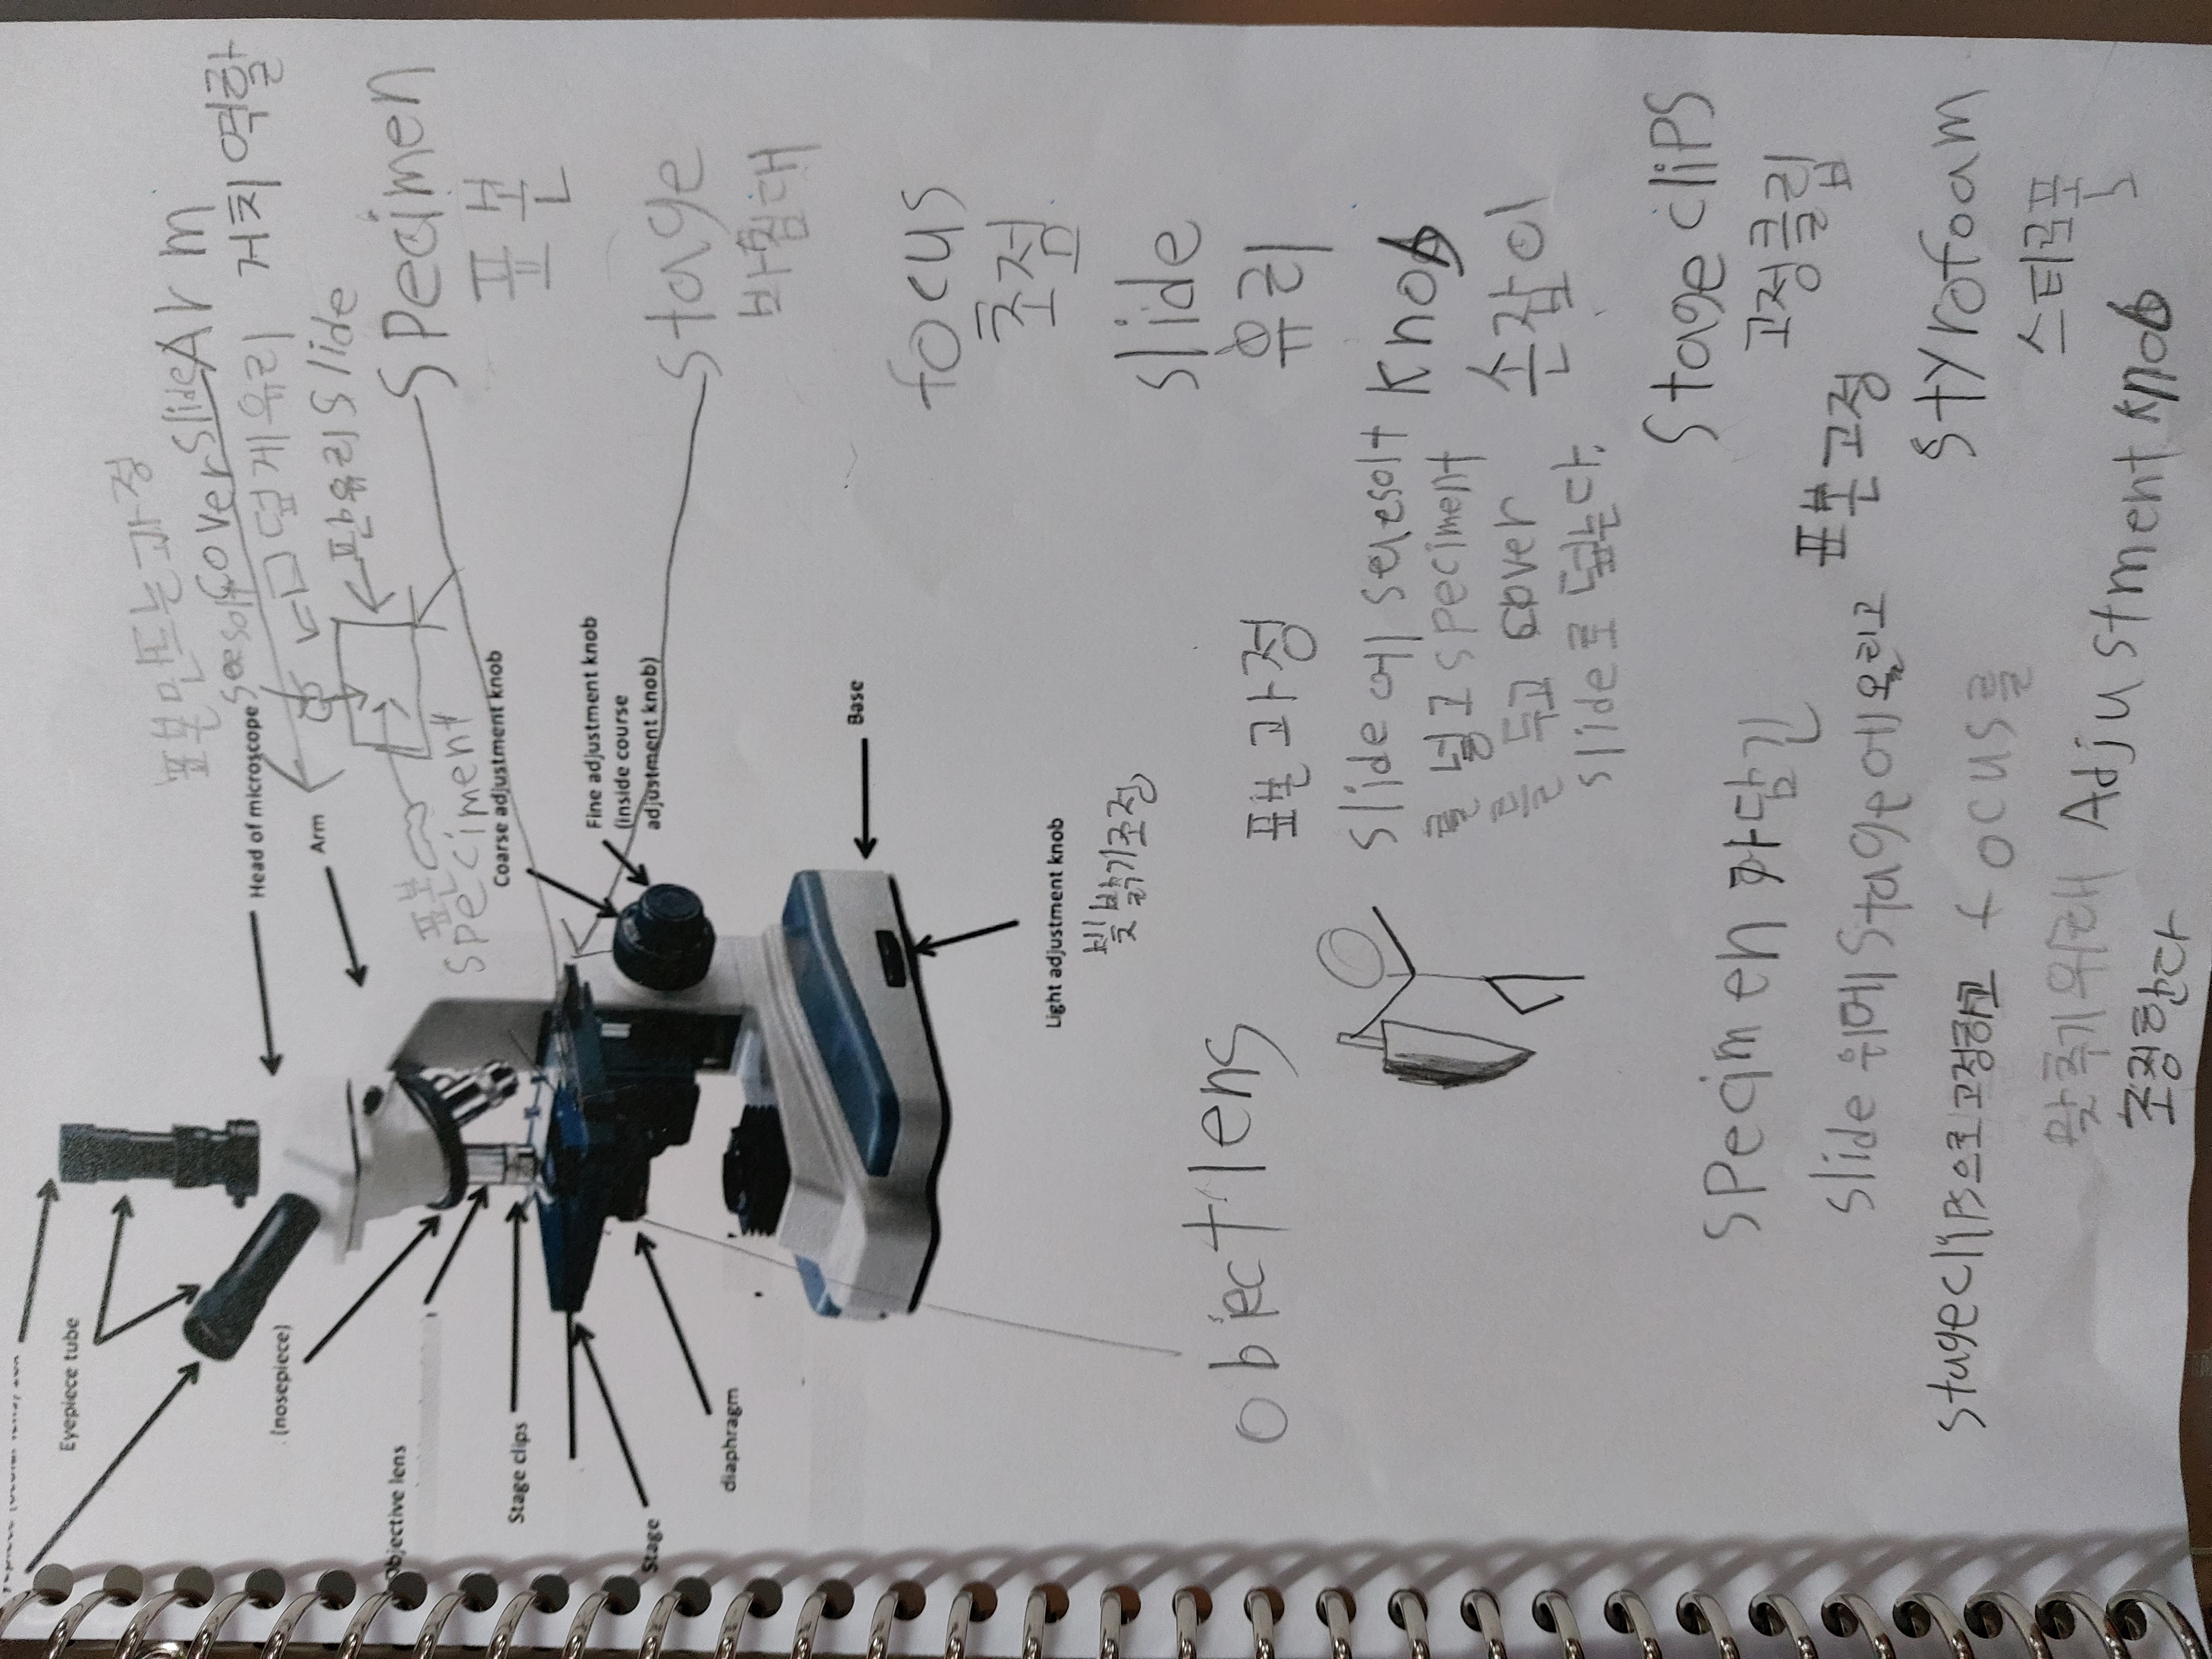 Eyepiece tube
Head of microscope
Arm
(nosepiece)
Objective lens
Stage clips
Stage
diaphragm
Coarse adjustment knob
Fine adjustment knob
(inside course
adjustment knob)
Base
Light adjustment knob
빛밝기조정
표본만드는과정
Cover slide
덮게유리
판유리 slide
표본
speciment
Arm
거치역할
specimen
표본
stage
focus
초점
slide
유리
knob
손잡이
stage clips
고정클립
표본고정
styrofoam
스티로폼
object lens
표본과정
slide에
speciment
cover
slide로 덮는다.
specimen
slide위에 stage에 올리고
stageclips으로고정하고 focus를
맞추기위해 Adjustment knob
조정한다